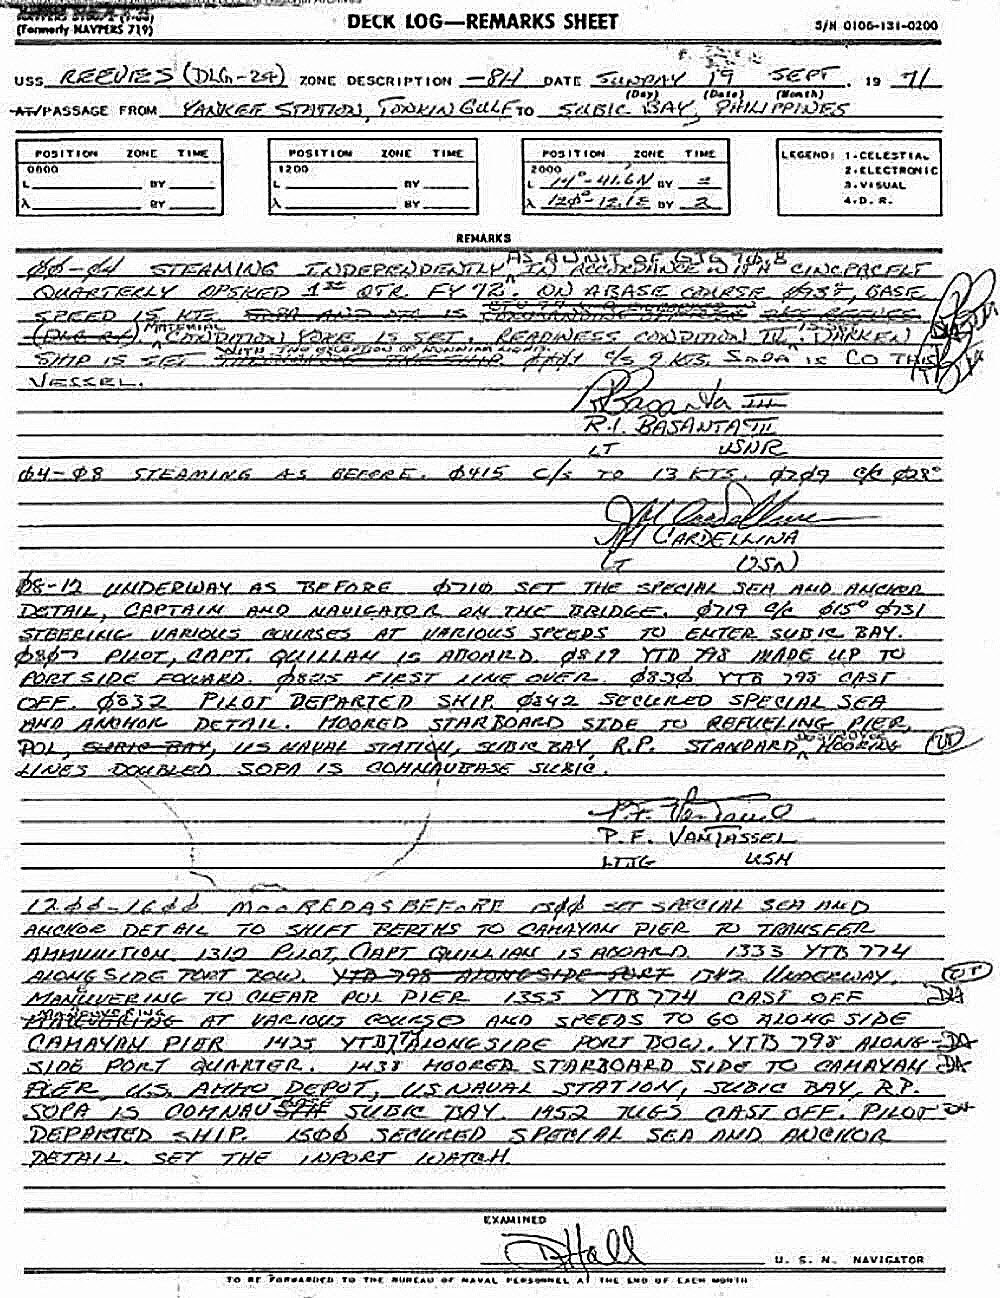 DECK LOG—REMARKS SHEET
(Formerly NAVPERS 719)
S/N 0106-131-0200
USS REEVES (DLG-24) ZONE DESCRIPTION -8H DATE SUNDAY 19 SEPT. 19 71
(Day) (Date) (Month)
AT/PASSAGE FROM YANKEE STATION, TONKIN GULF TO SUBIC BAY, PHILIPPINES
POSITION ZONE TIME
0800
L BY
λ BY
POSITION ZONE TIME
1200
L BY
λ BY
POSITION ZONE TIME
2000
L 14°-41.6N BY 2
λ 120°-12.1E BY 2
LEGEND: 1-CELESTIAL
2-ELECTRONIC
3-VISUAL
4-D. R.
REMARKS
AS A UNIT OF
ØØ-Ø4 STEAMING INDEPENDENTLY, IN ACCORDANCE WITH CINCPACFLT
QUARTERLY OPSKED 1ST QTR. FY 72. ON A BASE COURSE Ø93°, BASE
SPEED IS KTS. SOPA AND OTC IS
(DLG-24) MATERIAL CONDITION YOKE IS SET. READINESS CONDITION IV. DARKEN
SHIP IS SET WITH THE EXCEPTION OF RUNNING LIGHTS. C/S 9 KTS. SOPA IS CO THIS
VESSEL.
R.I. BASANTA III
LT USNR
Ø4-Ø8 STEAMING AS BEFORE. Ø415 C/S TO 13 KTS. Ø7Ø9 C/C Ø28°
JM CARDELLINA
LT USN
Ø8-12 UNDERWAY AS BEFORE Ø71Ø SET THE SPECIAL SEA AND ANCHOR
DETAIL, CAPTAIN AND NAVIGATOR ON THE BRIDGE. Ø719 C/C Ø15° Ø731
STEERING VARIOUS COURSES AT VARIOUS SPEEDS TO ENTER SUBIC BAY.
Ø8Ø7 PILOT, CAPT. QUILLAN IS ABOARD. Ø819 YTB 798 MADE UP TO
PORT SIDE FOWARD. Ø825 FIRST LINE OVER. Ø83Ø YTB 798 CAST
OFF. Ø832 PILOT DEPARTED SHIP. Ø842 SECURED SPECIAL SEA
AND ANCHOR DETAIL. MOORED STARBOARD SIDE TO REFUELING PIER,
POL, SUBIC BAY, US NAVAL STATION, SUBIC BAY, R.P. STANDARD DESTROYER MOORING
LINES DOUBLED SOPA IS COMNAVBASE SUBIC.
P.F. VanTassel
P.F. VANTASSEL
LTJG USN
12ØØ-16ØØ MOORED AS BEFORE 13ØØ SET SPECIAL SEA AND
ANCHOR DETAIL TO SHIFT BERTHS TO CAMAYAN PIER TO TRANSFER
AMMUNITION. 1310 PILOT, CAPT QUILLIAN IS ABOARD. 1333 YTB 774
ALONGSIDE PORT BOW. YTB 798 ALONGSIDE PORT 1342 UNDERWAY,
MANEUVERING TO CLEAR POL PIER 1355 YTB 774 CAST OFF
MANEUVERING AT VARIOUS COURSES AND SPEEDS TO GO ALONG SIDE
CAMAYAN PIER 1425 YTB 774 ALONGSIDE PORT BOW. YTB 798 ALONG-
SIDE PORT QUARTER. 1438 MOORED STARBOARD SIDE TO CAMAYAN
PIER, U.S. AMMO DEPOT, US NAVAL STATION, SUBIC BAY, R.P.
SOPA IS COMNAVBASE SUBIC BAY. 1452 TUGS CAST OFF. PILOT
DEPARTED SHIP. 1500 SECURED SPECIAL SEA AND ANCHOR
DETAIL. SET THE INPORT WATCH.
EXAMINED
D Hall
U. S. N. NAVIGATOR
TO BE FORWARDED TO THE BUREAU OF NAVAL PERSONNEL AT THE END OF EACH MONTH